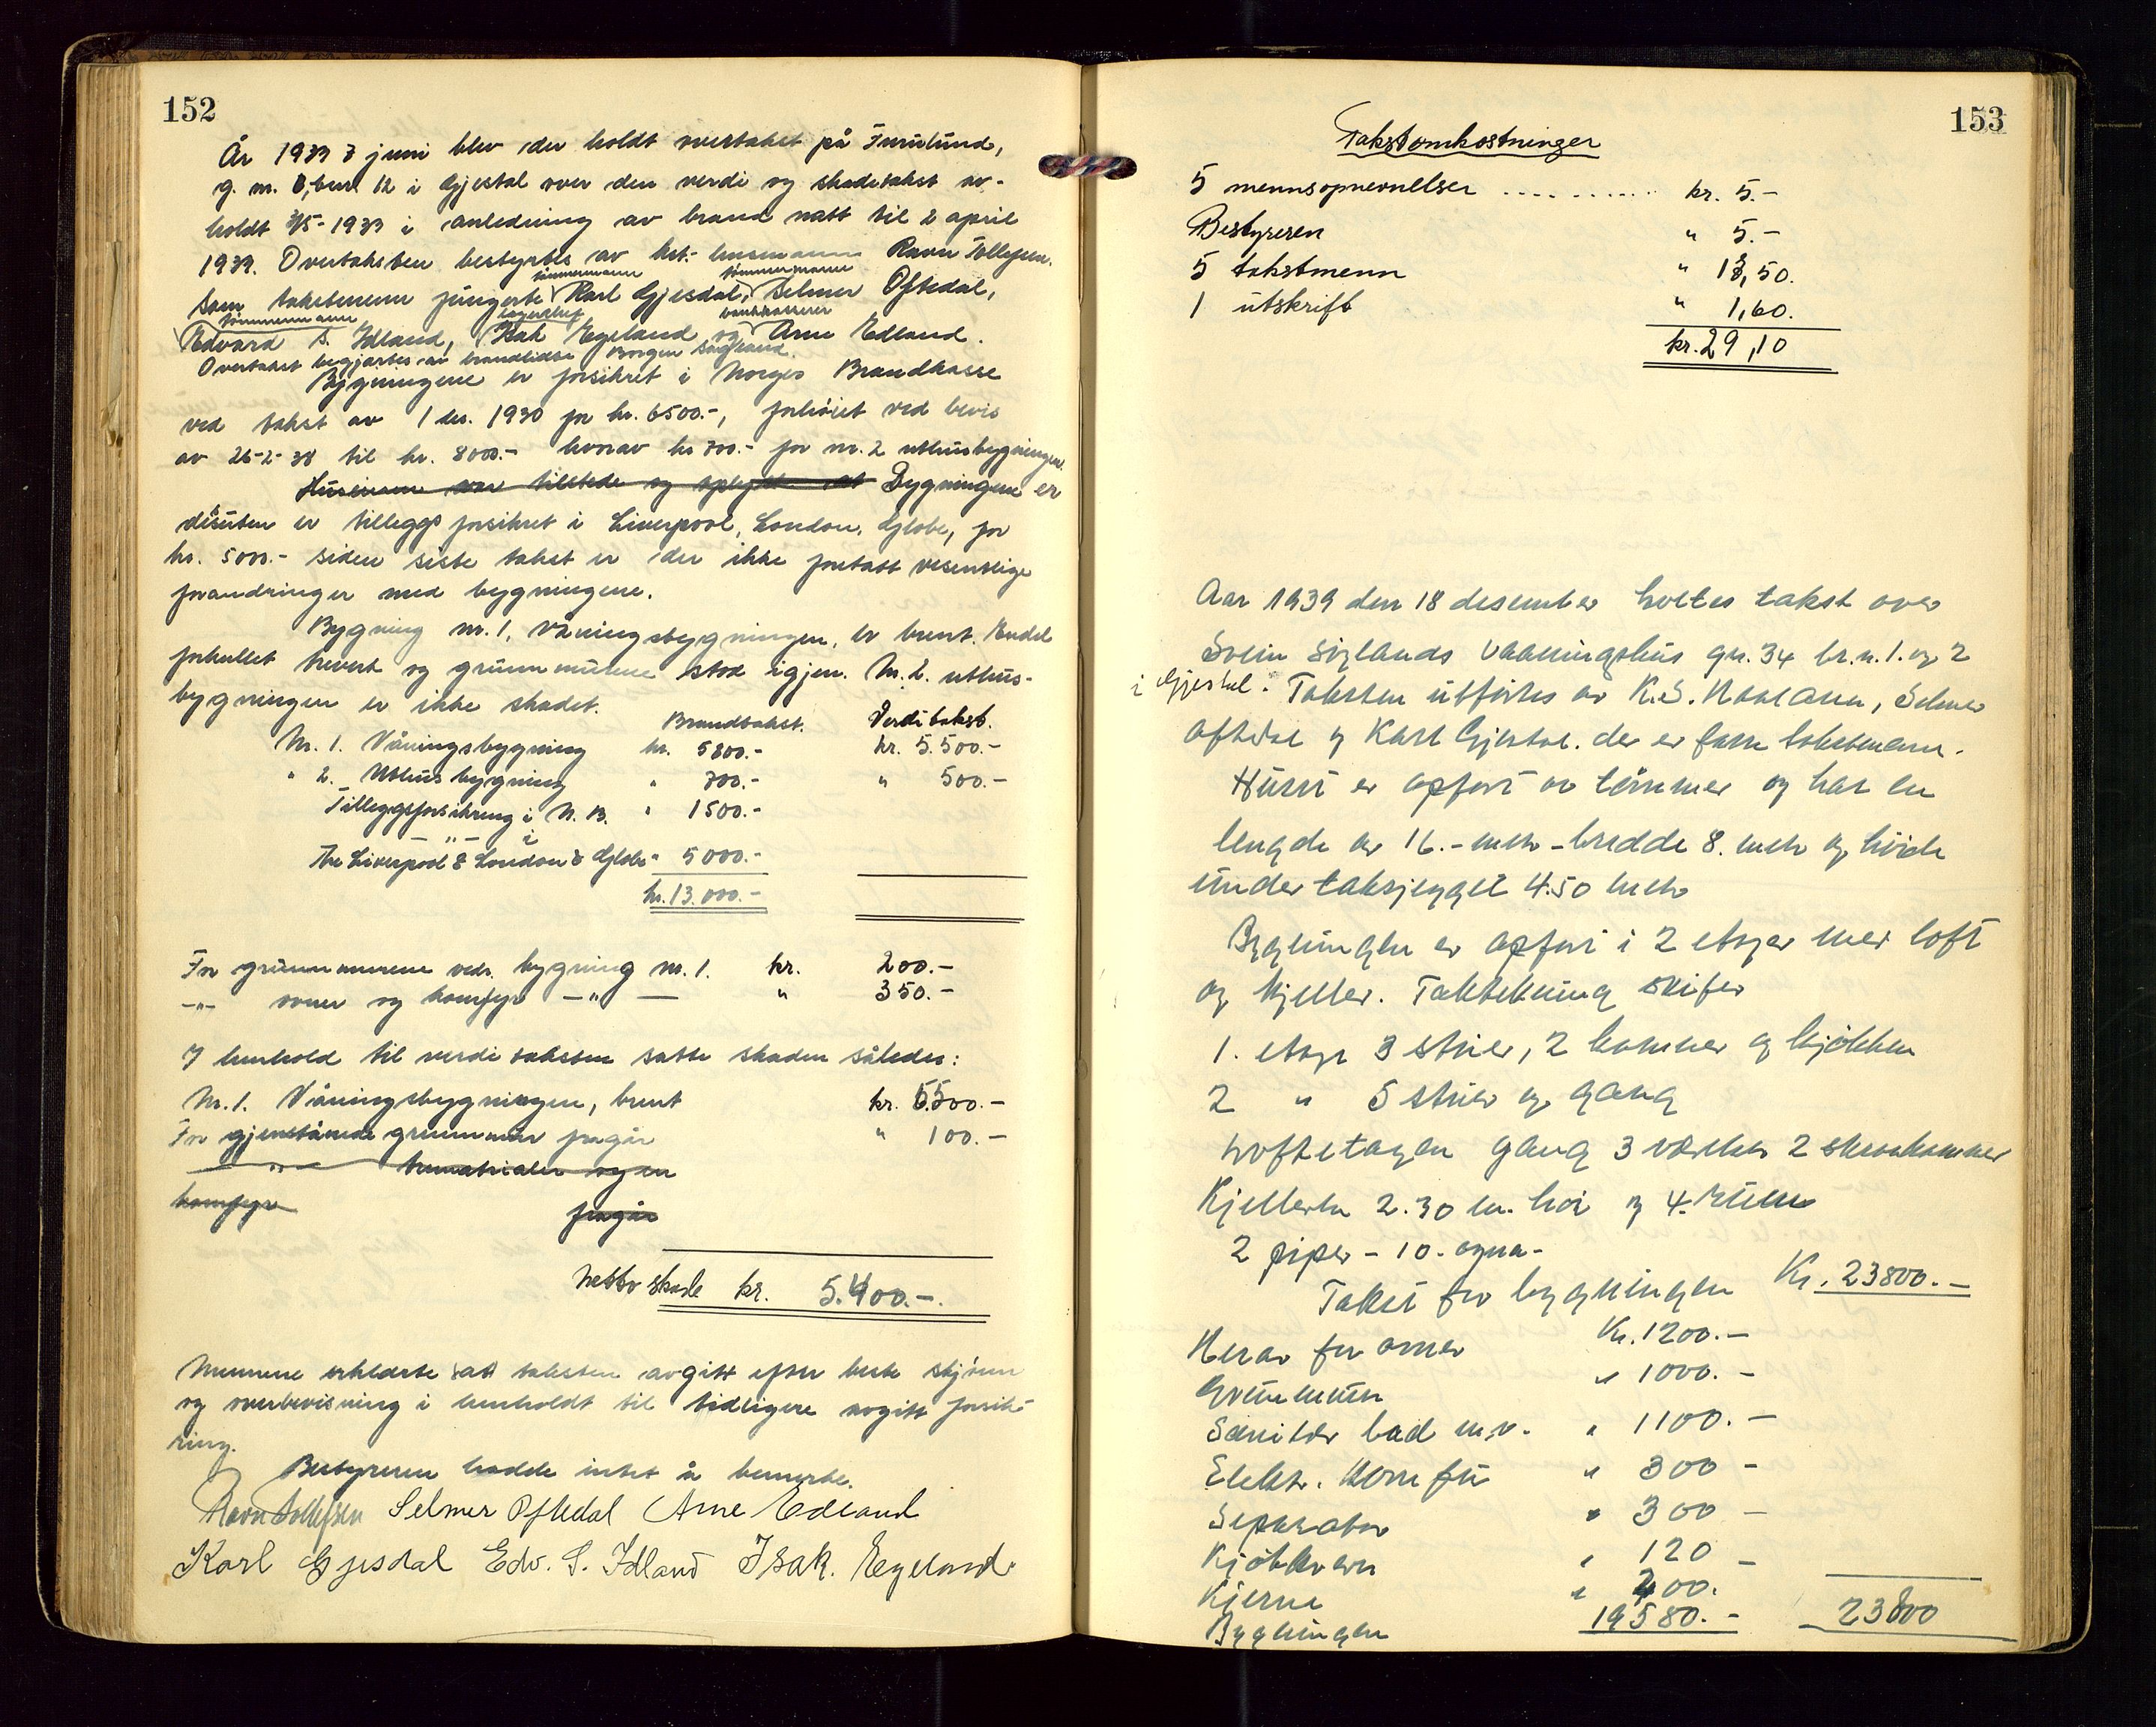 152
År 1939 3 juni blev der holdt overtakst på Furulund,
g. nr. 8, br.nr. 12 i Gjestal over den verdi og skadetakst av-
holdt 3/5-1939 i anledning av brand natt til 2 april
1939. Overtaksten bestyrtes av kst. lensmann Ravn Tollefsen.
tømmermann tømmermann
Som takstmenn fungerte Karl Gjesdal, Selmer Oftedal,
tømmermann bankkasserer
Edvard S. Idland, Isak Egeland og Arne Edland.
Overtakst begjærtes av brandlidte
Bygningene er forsikret i Norges Brandkasse
ved takst av 1 des. 1930 for kr. 6500.-, forhøiet ved bevis
av 26-2-38 til kr. 8000.- hvorav kr 700.- for nr. 2 uthusbygningen.
Huseieren var tilstede og oplyste at Bygningene er
dêsuten er tilleggsforsikret i Liverpool, London, Globe, for
kr. 5000.- siden siste takst er der ikke foretatt vesentlige
forandringer med bygningene.
Bygning nr. 1, våningsbygningen, er brent. Endel
forkullet treverk og grunnmurene stod igjen. Nr. 2. uthus-
bygningen er ikke skadet.
Brandtakst. Verditakst.
Nr. 1. Våningsbygning kr. 5800.- kr. 5.500.-
" 2. Uthusbygning " 700.- " 500.-
Tilleggsforsikring i N. B. " 1500.-
-"- i
The Liverpool & London & Globe " 5000.-
kr. 13.000.-
For grunnmurene vedr. bygning nr. 1. kr. 200.-
-"- ovner og komfyr -"- " 350.-
I henhold til verditaksten sattes skaden således:
Nr. 1. Våningsbygningen, brent kr. 5.500.-
For gjenstående grunnmur fragår " 100.-
-"- trematerialer og en
komfyr fragår
Netto skade kr. 5.400.-
Mennene erklærte at taksten avgitt efter beste skjønn
og overbevisning i henholdt til tidligere avgitt forsik-
ring.
Bestyreren hadde intet å bemerke.
Ravn Tollefsen Selmer Oftedal Arne Edland
Karl Gjesdal Edv. S. Idland Isak. Egeland.
153
Takstomkostninger
5 mennsopnevnelser .......... kr. 5.-
Bestyreren " 5.-
5 takstmenn " 1,50.
1 utskrift " 1,60.
kr. 29,10
Aar 1939 den 18 desember holtes takst over
Svein Siglands Vaaningshus gn. 34 br.n. 1. og 2
i Gjestal. Taksten utførtes av K.S. Selmer
Oftedal og Karl Gjestal. der er faste takstmenn.
Huset er opført av tømmer og har en
lengde av 16.- meter - bredde 8. meter og høide
under takskjegget 4.50 meter
Bygningen er opført i 2 etager med loft
og kjeller. Taktekning skifer
1. etage 3 stuer, 2 kammer og kjøkken
2 " 5 stuer og gang
Loftetagen gang 3 værelser 2 skraakammer
Kjelleren 2.30 m. høi og 4. rum
2 piper - 10. ovner -
Takst for bygningen Kr. 23800.-
Herav for ovner Kr. 1200.-
Grunnmuren " 1000.-
Sanitær bad m.v. " 1100.-
Elektr. Komfur " 300 -
Separator " 300 -
Kjøtkvern " 120 -
Kjerne " 200.
Bygningen 19580.- 23800